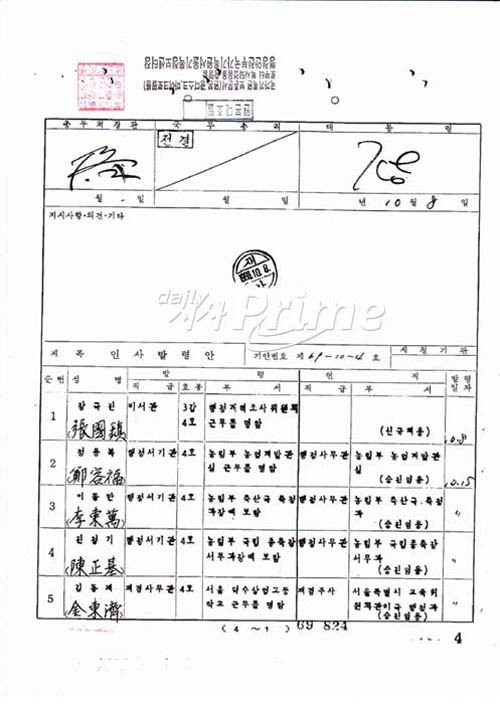 전결
월 일
월 일
년 10월 8일
지시사항·의견·기타
dailyPrime
제목 인사발령안
기안번호 제 69-10-4 호
제청기관
순번
성명
발령
현직
발령일자
직급
호봉
부서
직급
부서
1
장국진
張國鎮
비서관
3갑
4호
행정개혁조사위원회
근무를 명함
(신규채용)
10.8
2
정용복
鄭容福
행정서기관
4호
농림부 농업개발관
실 근무를 명함
행정사무관
농림부 농업개발관
실
(승진임용)
10.15
3
이동만
李東萬
행정서기관
4호
농림부 축산국 축정
과장에 보함
행정사무관
농림부 축산국 축정
과
(승진임용)
"
4
진정기
陳正基
행정서기관
4호
농림부 국립종축장
서무과장에 보함
행정사무관
농림부 국립종축장
서무과
(승진임용)
"
5
김동제
金東濟
재경사무관
4호
서울 덕수상업고등
학교 근무를 명함
재경주사
서울특별시 교육위
(승진임용)
"
(4~1)
69 824
4